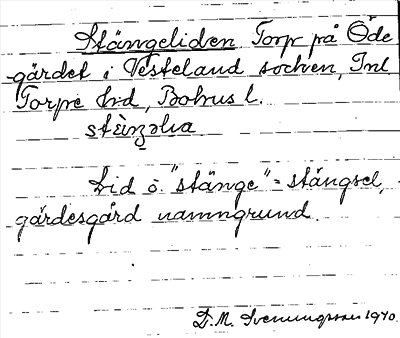 Stängeliden Torp på Öde
gärdet i Västeland socken, Inl
Torpe hd, Bohus l.
Lid o. "stänge" = stängsel,
gärdesgård namngrund.
D. M. Svenungsson 1940.